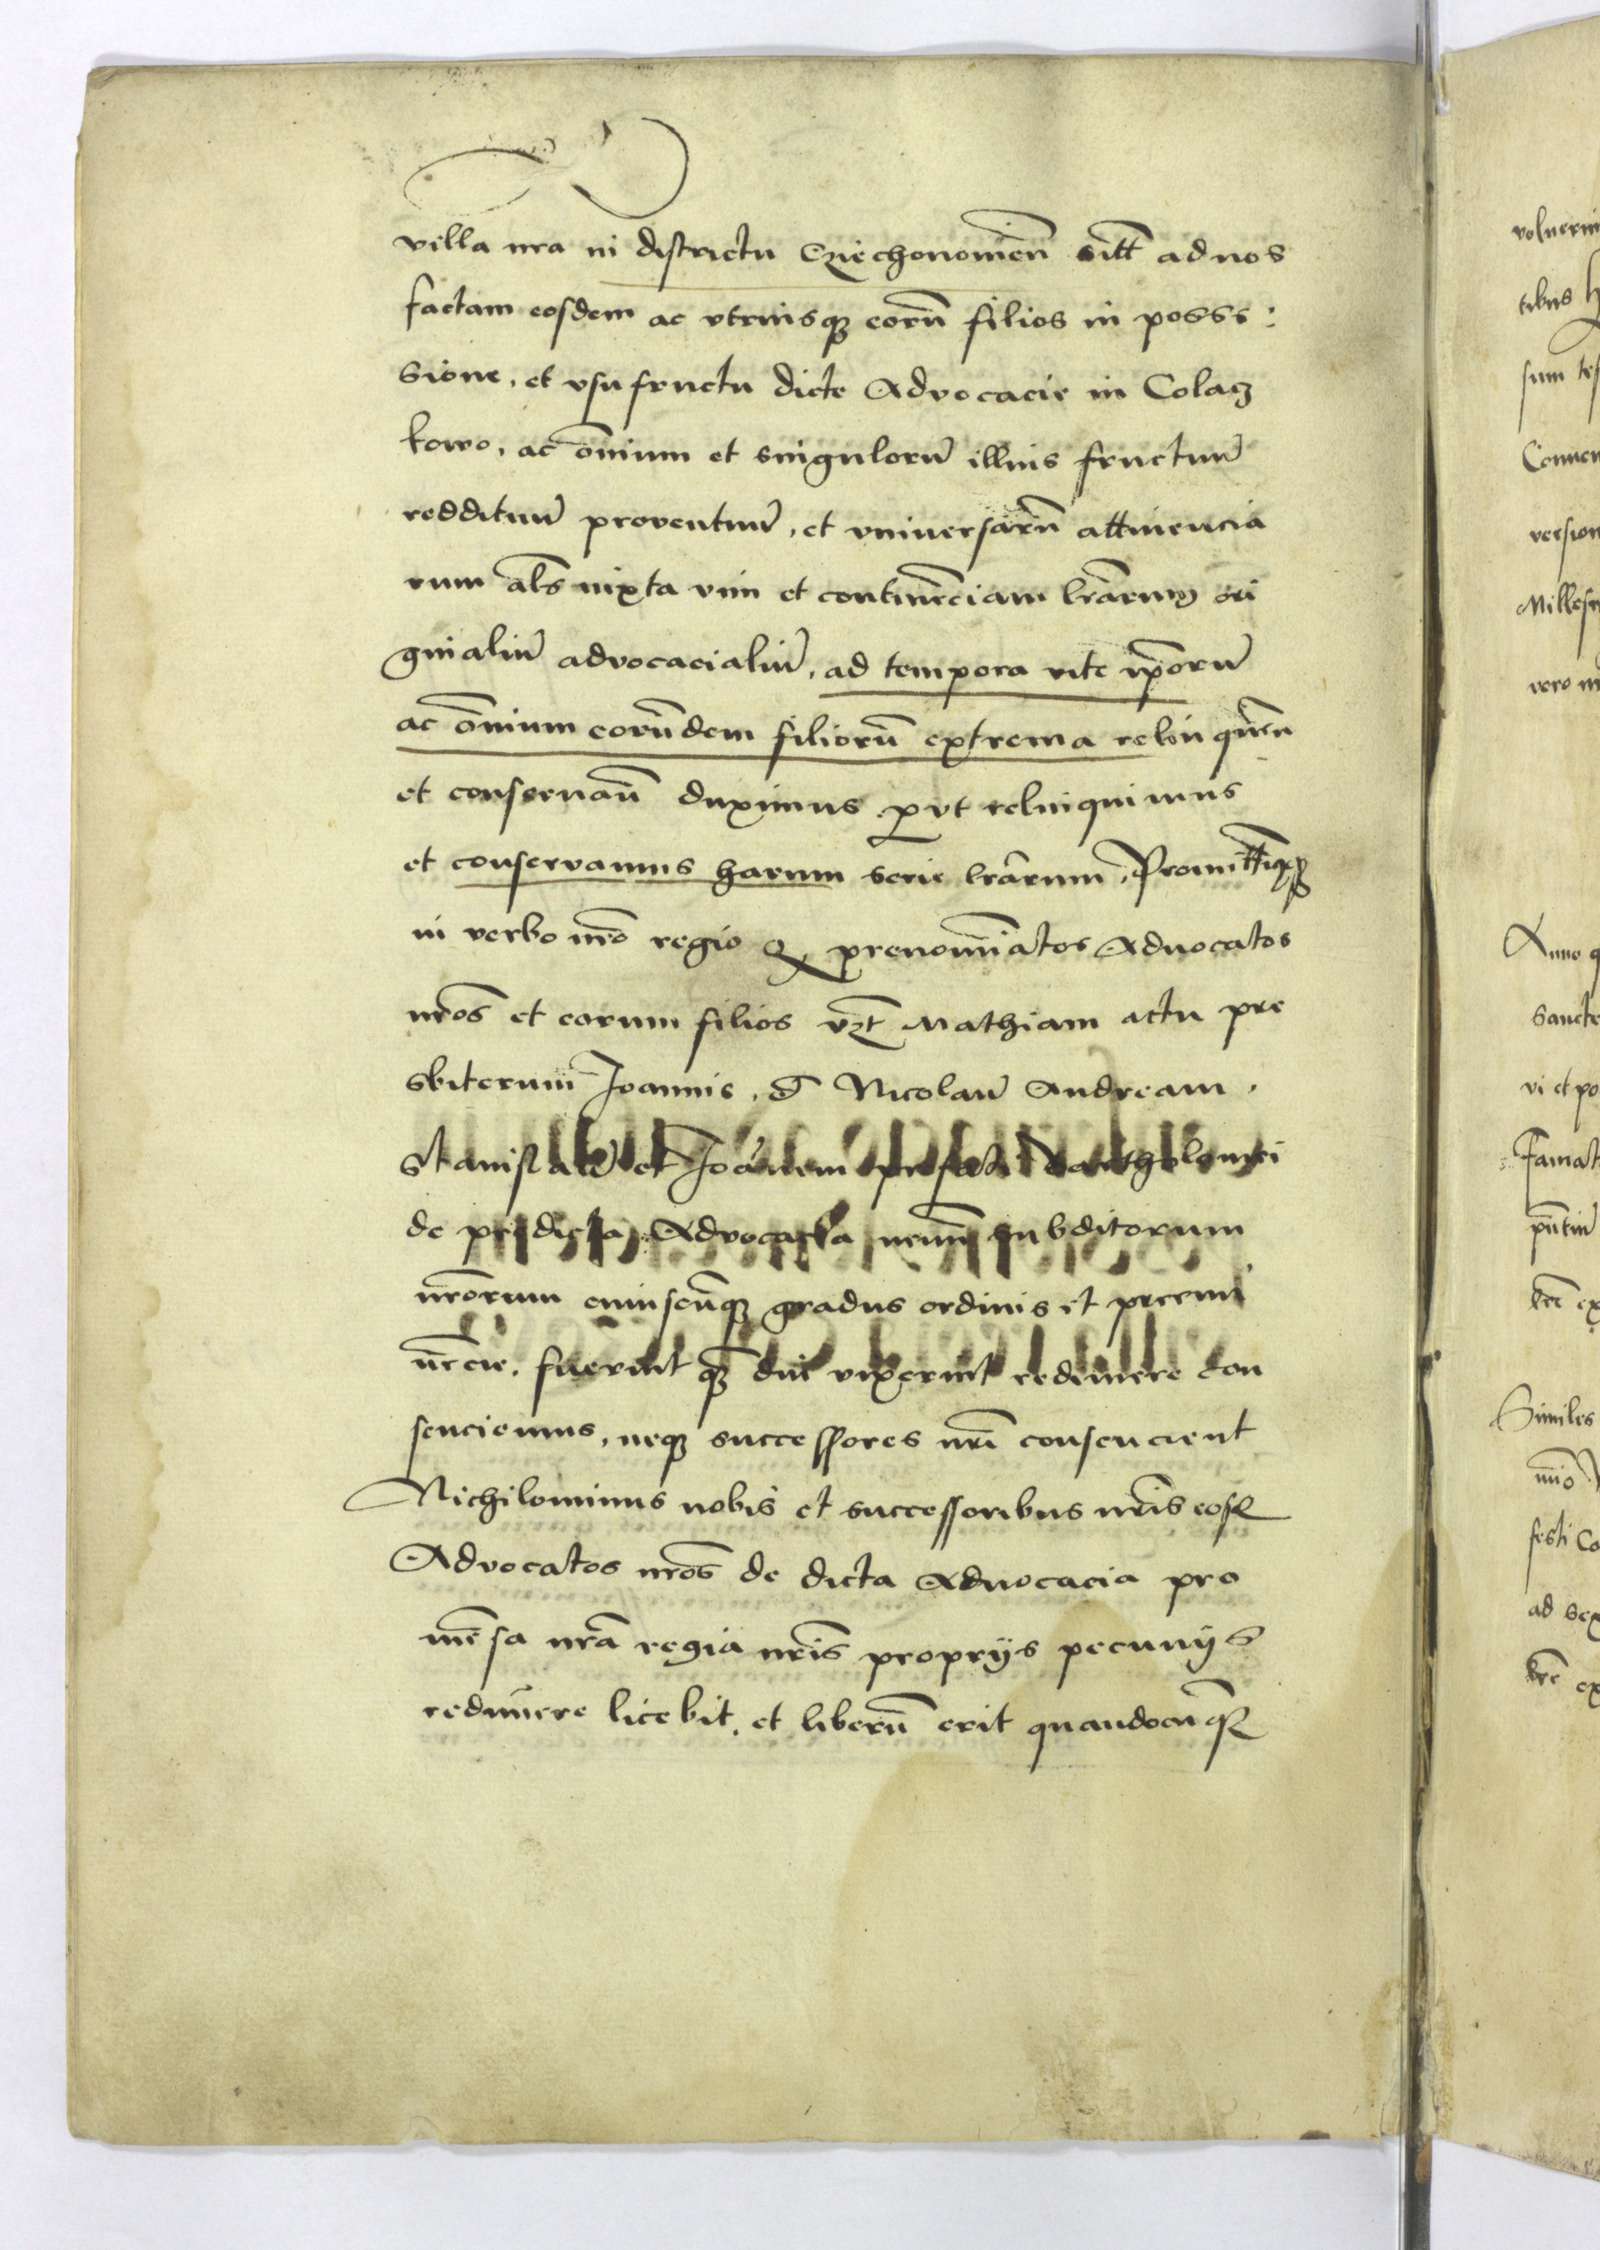 villa nra in districtu Cziechonomien̄ sitt̄ ad nos
factam eosdem ac vtriusqȝ eorū filios in posses:
sione, et vsufructu dicte Advocacie in Colacȝ
kowo, ac om̄ium et singulorū illius fructuū
reddituū proventuū, et vniversarū attinencia
rum als̄ iuxta vim et contine̅ciam lrārum ori
ginaliū advocacialiū, ad tempora vite ip̄orū
ac om̄ium eorūdem filiorū extrema relinquen̄
et conservan̄ duximus ꝓut relinquimus
et conservamus harum serie lrārum, PromittꝪqȝ
in verbo nr̄o regio Qꝫ prenoīatos Advocatos
nr̄os et eorum filios vꝫt Mathiam actu pre
sbiterum Joannis, & Nicolaū Andream,
Stanislaū et Joānem prefati Bartholomei
de predicta Advocacia nemī subditorum
nr̄orum cuiuscūqȝ gradus ordinis et preemi
ne̅cie, fuerint qȝ diu vixerint redimere con
senciemus, neqȝ successores nr̄i consencient
Nichilominus nobis et successoribus nr̄is eosd
Advocatos nr̄os de dicta Advocacia pro
me̅sa nr̄a regia nr̄is proprijs pecunijs
redimere licebit, et liberū erit quandocūqȝ
volueri
tibus
sum tes
Conven
version
Millesi
vero
Anno q
Sancte
vi et po
Famat
Similes
festi Co
ad sex